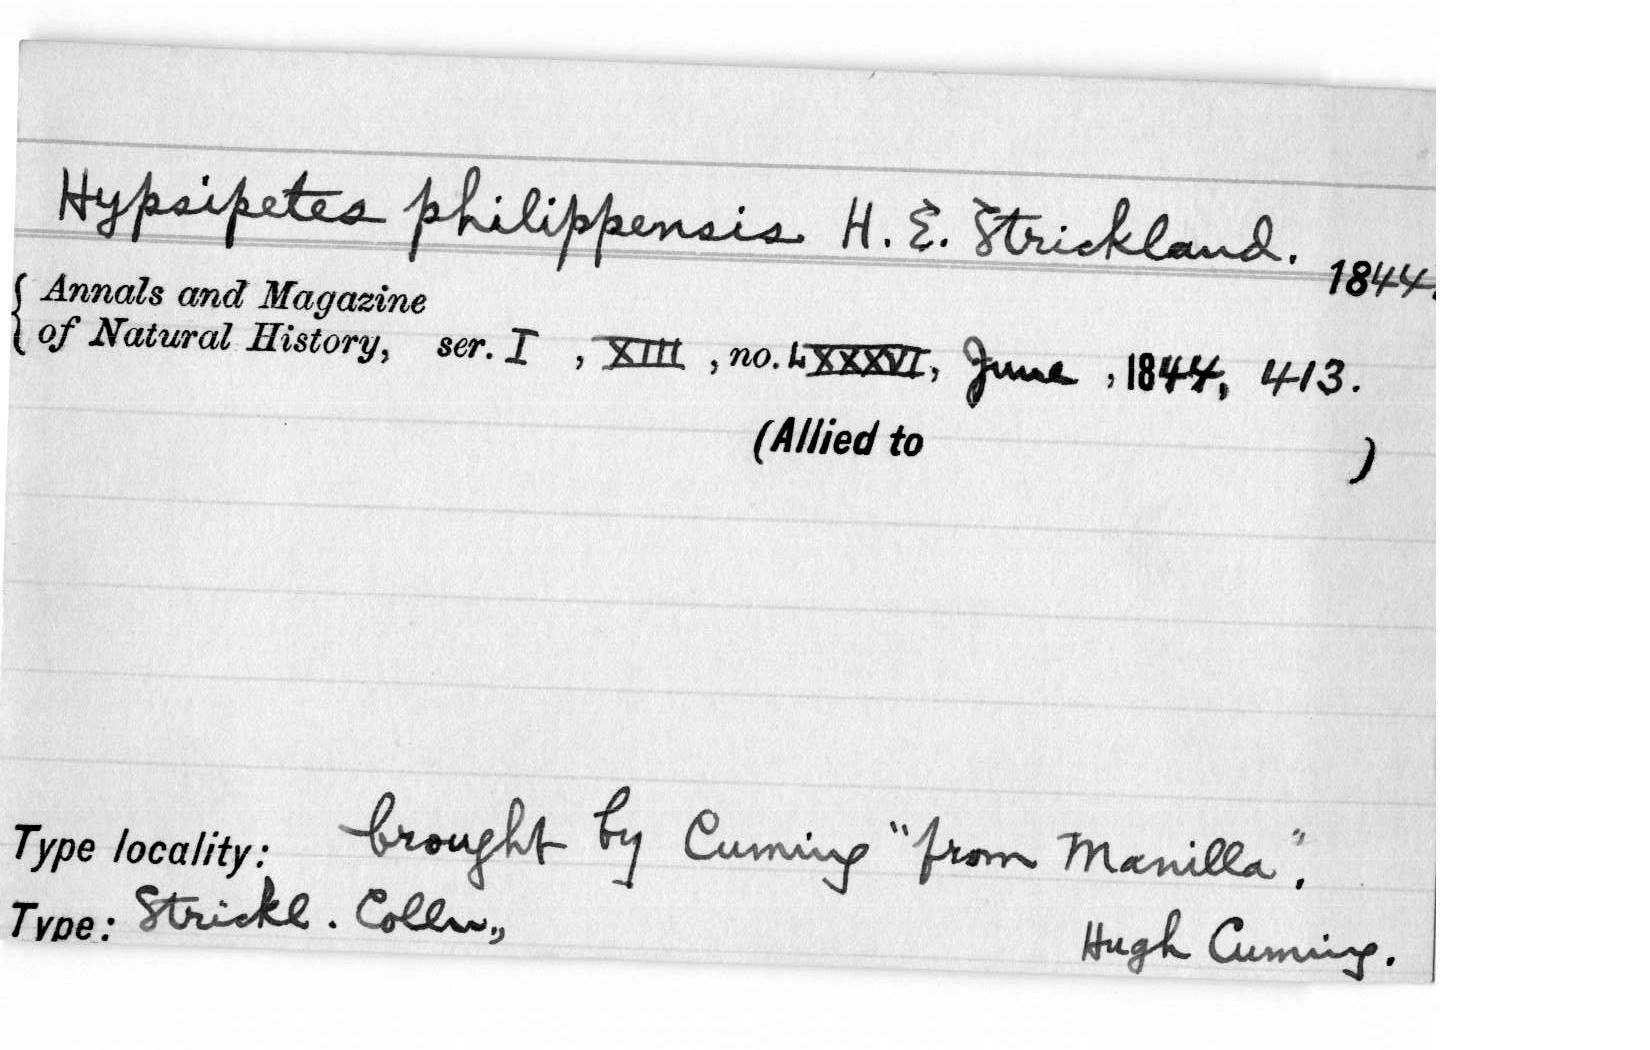 Hypsipetes philippensis H. E. Strickland. 1844.
Annals and Magazine
of Natural History, ser. I , XIII , no. LXXXVI, June , 1844, 413.
(Allied to )
Type locality: brought by Cuming "from Manilla".
Type: Strickl. Colln.,
Hugh Cuming.